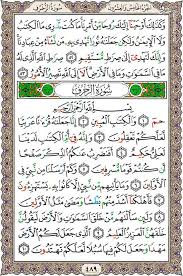 سورة الزخرف
وَكَذَٰلِكَ أَوْحَيْنَا إِلَيْكَ رُوحًا مِّنْ أَمْرِنَا مَا كُنتَ تَدْرِى مَا الْكِتَٰبُ
وَلَا الْإِيمَٰنُ وَلَٰكِن جَعَلْنَٰهُ نُورًا نَّهْدِى بِهِ مَن نَّشَاءُ مِنْ عِبَادِنَا
وَإِنَّكَ لَتَهْدِى إِلَىٰ صِرَٰطٍ مُّسْتَقِيمٍ ٥٢ صِرَٰطِ اللَّهِ الَّذِى لَهُ
مَا فِى السَّمَٰوَٰتِ وَمَا فِى الْأَرْضِ أَلَا إِلَى اللَّهِ تَصِيرُ الْأُمُورُ ٥٣
سورة الزخرف
بِسْمِ اللَّهِ الرَّحْمَٰنِ الرَّحِيمِ
حمٓ ١ وَالْكِتَٰبِ الْمُبِينِ ٢ إِنَّا جَعَلْنَٰهُ قُرْءَٰنًا عَرَبِيًّا
لَّعَلَّكُمْ تَعْقِلُونَ ٣ وَإِنَّهُ فِى أُمِّ الْكِتَٰبِ لَدَيْنَا لَعَلِىٌّ
حَكِيمٌ ٤ أَفَنَضْرِبُ عَنكُمُ الذِّكْرَ صَفْحًا
أَن كُنتُمْ قَوْمًا مُّسْرِفِينَ ٥ وَكَمْ أَرْسَلْنَا مِن نَّبِىٍّ فِى
الْأَوَّلِينَ ٦ وَمَا يَأْتِيهِم مِّن نَّبِىٍّ إِلَّا كَانُوا بِهِ يَسْتَهْزِءُونَ
٧ فَأَهْلَكْنَا أَشَدَّ مِنْهُم بَطْشًا وَمَضَىٰ مَثَلُ
الْأَوَّلِينَ ٨ وَلَئِن سَأَلْتَهُم مَّنْ خَلَقَ السَّمَٰوَٰتِ وَالْأَرْضَ
لَيَقُولُنَّ خَلَقَهُنَّ الْعَزِيزُ الْعَلِيمُ ٩ الَّذِى جَعَلَ لَكُمُ الْأَرْضَ
مَهْدًا وَجَعَلَ لَكُمْ فِيهَا سُبُلًا لَّعَلَّكُمْ تَهْتَدُونَ ١٠
٤٨٩